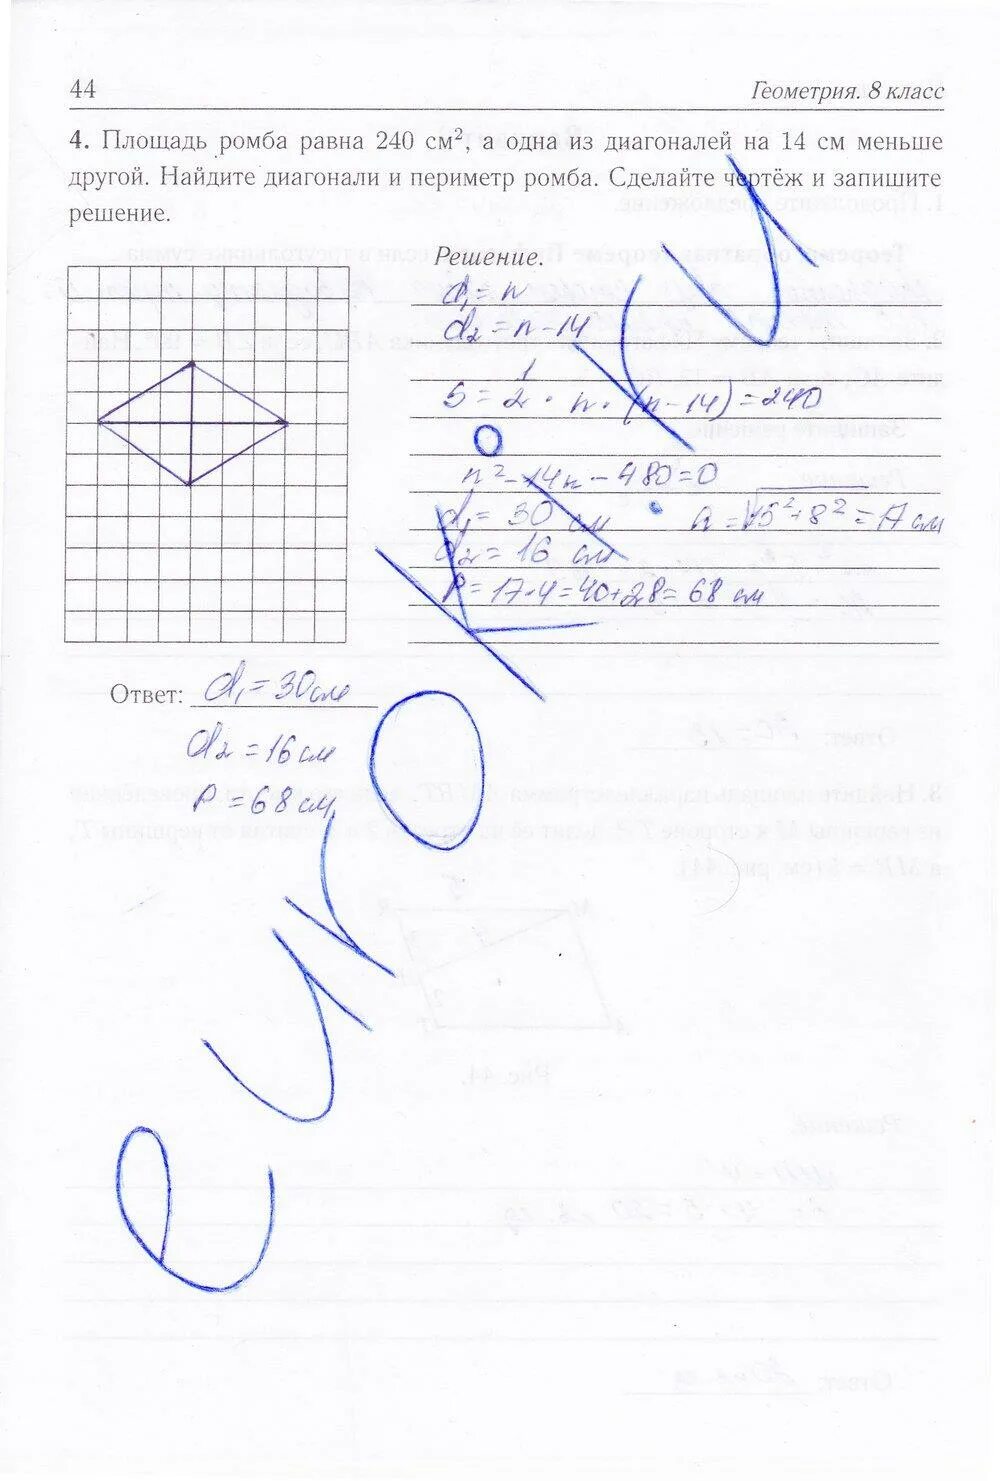 44
Геометрия. 8 класс
4. Площадь ромба равна 240 см², а одна из диагоналей на 14 см меньше
другой. Найдите диагонали и периметр ромба. Сделайте чертёж и запишите
решение.
Решение.
d₁ = n
d₂ = n - 14
S = 1/2 · n · (n - 14) = 240
n² - 14n - 480 = 0
d₁ = 30 см a = √15² + 8² = 17 см
d₂ = 16 см
P = 17 · 4 = 40 + 28 = 68 см
Ответ: d₁ = 30 см
d₂ = 16 см
P = 68 см